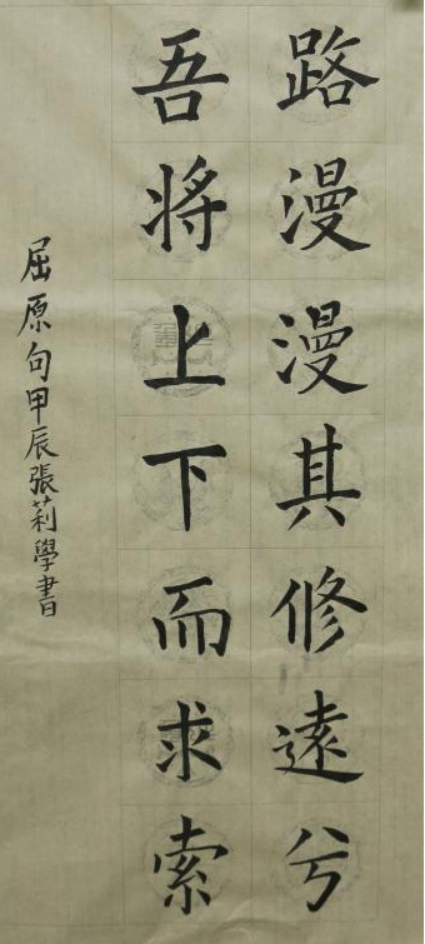 路漫漫其修遠兮
吾将上下而求索
屈原句甲辰張莉學書